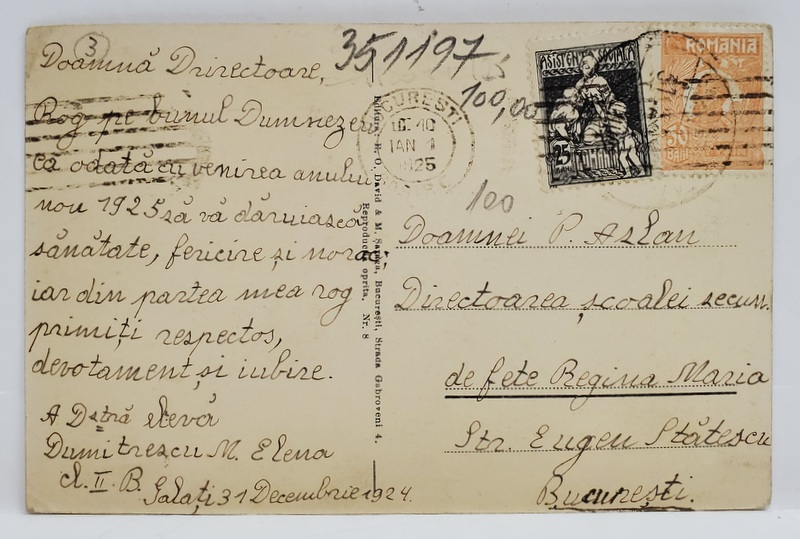 3
Doamnă Drirectoare,
Rog pe bunul Dumnezeu
ca odată cu venirea anului
nou 1925 să vă dăruiască
sănătate, fericire și noroc,
iar din partea mea rog
primiți respectos,
devotament și iubire.
A Dstră elevă
Dumitrescu M. Elena
cl. II. B.
Galați 31 Decembrie 1924.
351197
100,00
100
BUCUREȘTI
10
IAN 1
925
ASISTENȚA SOCIALĂ
25
ROMANIA
50
BANI
Editura H. O. David & M. Șaraga, București, Strada Gabroveni 4.
Reproducerea oprită. Nr. 8
Doamnei P. Aslan
Directoarea școalei secun.
de fete Regina Maria
Str. Eugen Stătescu
București.